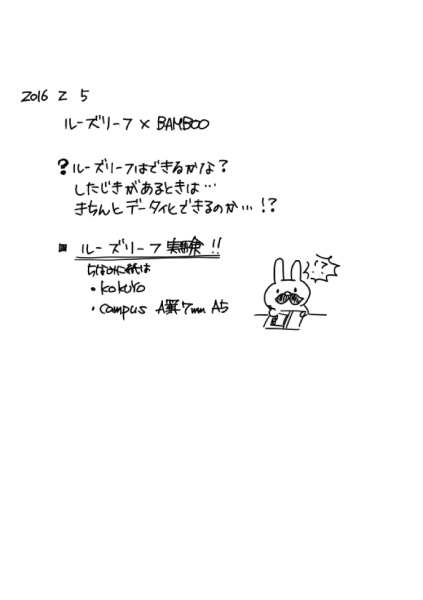 2016 2 5
ルーズリーフ × BAMBOO
? ルーズリーフはできるかな?
したじきがあるときは…
きちんとデータ化とできるのか…!?
ルーズリーフ実験!!
ちなみに紙は
・KOKUYO
・campus A罫7mm A5
!?